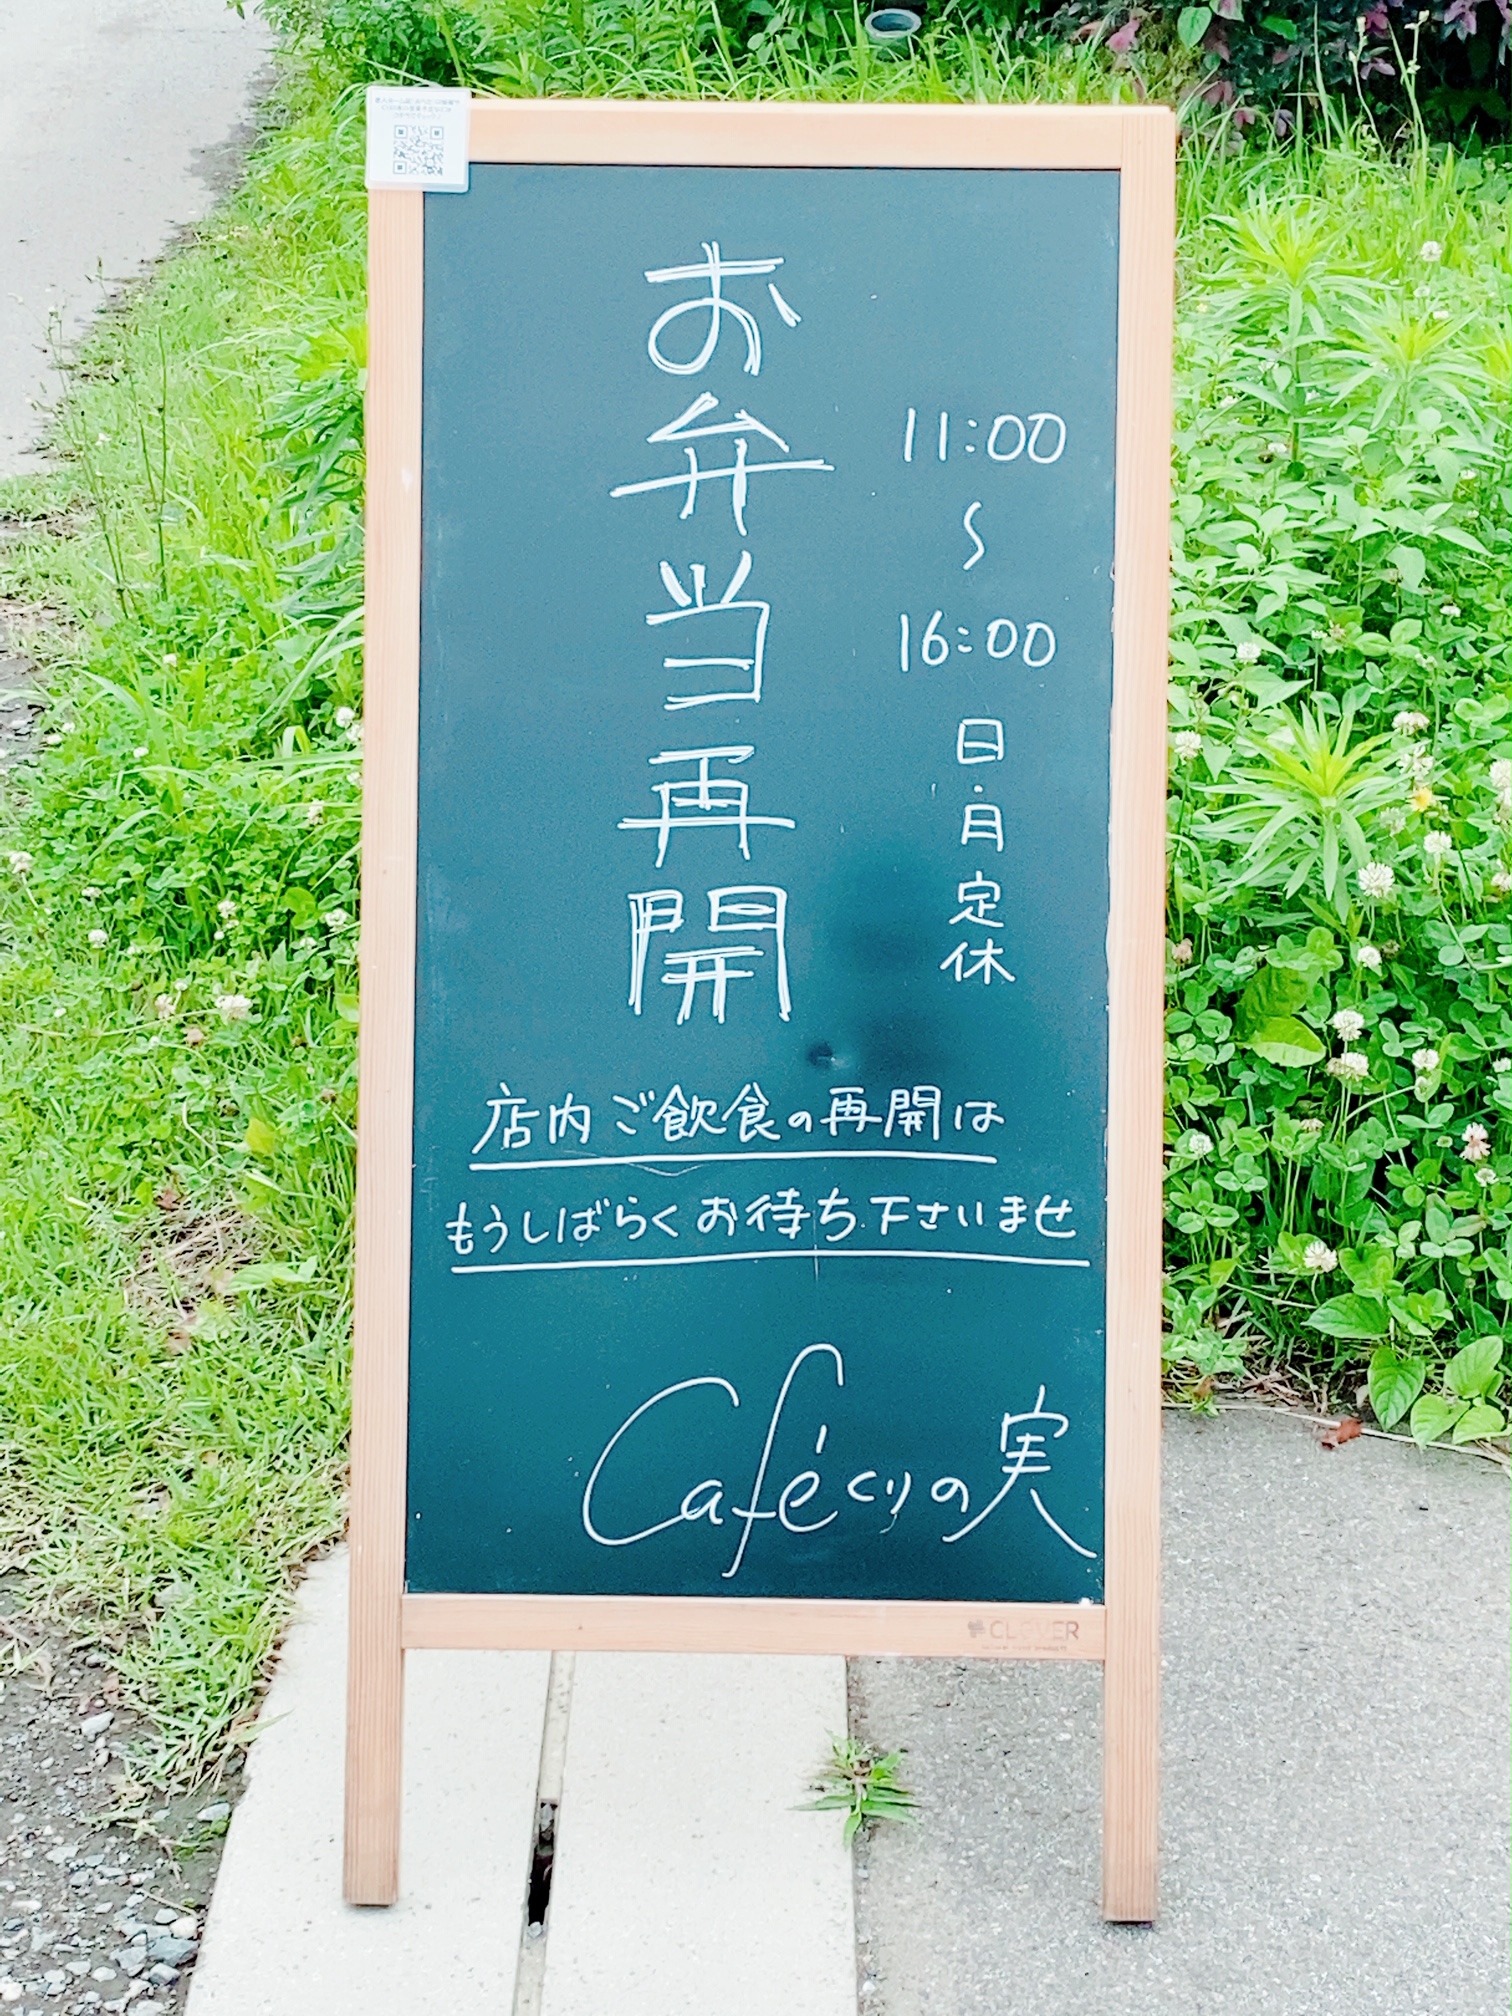 お弁当再開
11:00
〜
16:00
日・月定休
店内ご飲食の再開は
もうしばらくお待ち下さいませ
Caféくりの実
CLOVER